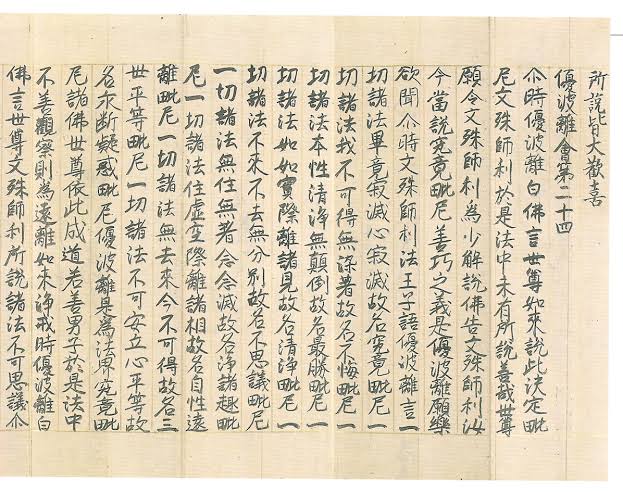 所說皆大歡喜
優波離會第二十四
尒時優波離白佛言世尊如來說此決定毗
尼文殊師利於是法中未有所說善哉世尊
願令文殊師利為少解說佛告文殊師利汝
今當說究竟毗尼善巧之義是優波離願樂
欲聞尒時文殊師利法王子語優波離言一
切諸法畢竟寂滅心寂滅故名究竟毗尼一
切諸法我不可得無染著故名不悔毗尼一
切諸法本性清淨無顛倒故名最勝毗尼一
切諸法如如實際離諸見故名清淨毗尼一
切諸法不來不去無分別故名不思議毗尼
一切諸法無住無著念念滅故名淨諸趣毗
尼一切諸法住虛空際離諸相故名自性遠
離毗尼一切諸法無去來今不可得故名三
世平等毗尼一切諸法不可安立心平等故
名永斷疑惑毗尼優波離是為法界究竟毗
尼諸佛世尊依此成道若善男子於是法中
不善觀察則為遠離如來淨戒時優波離白
佛言世尊文殊師利所說諸法不可思議尒